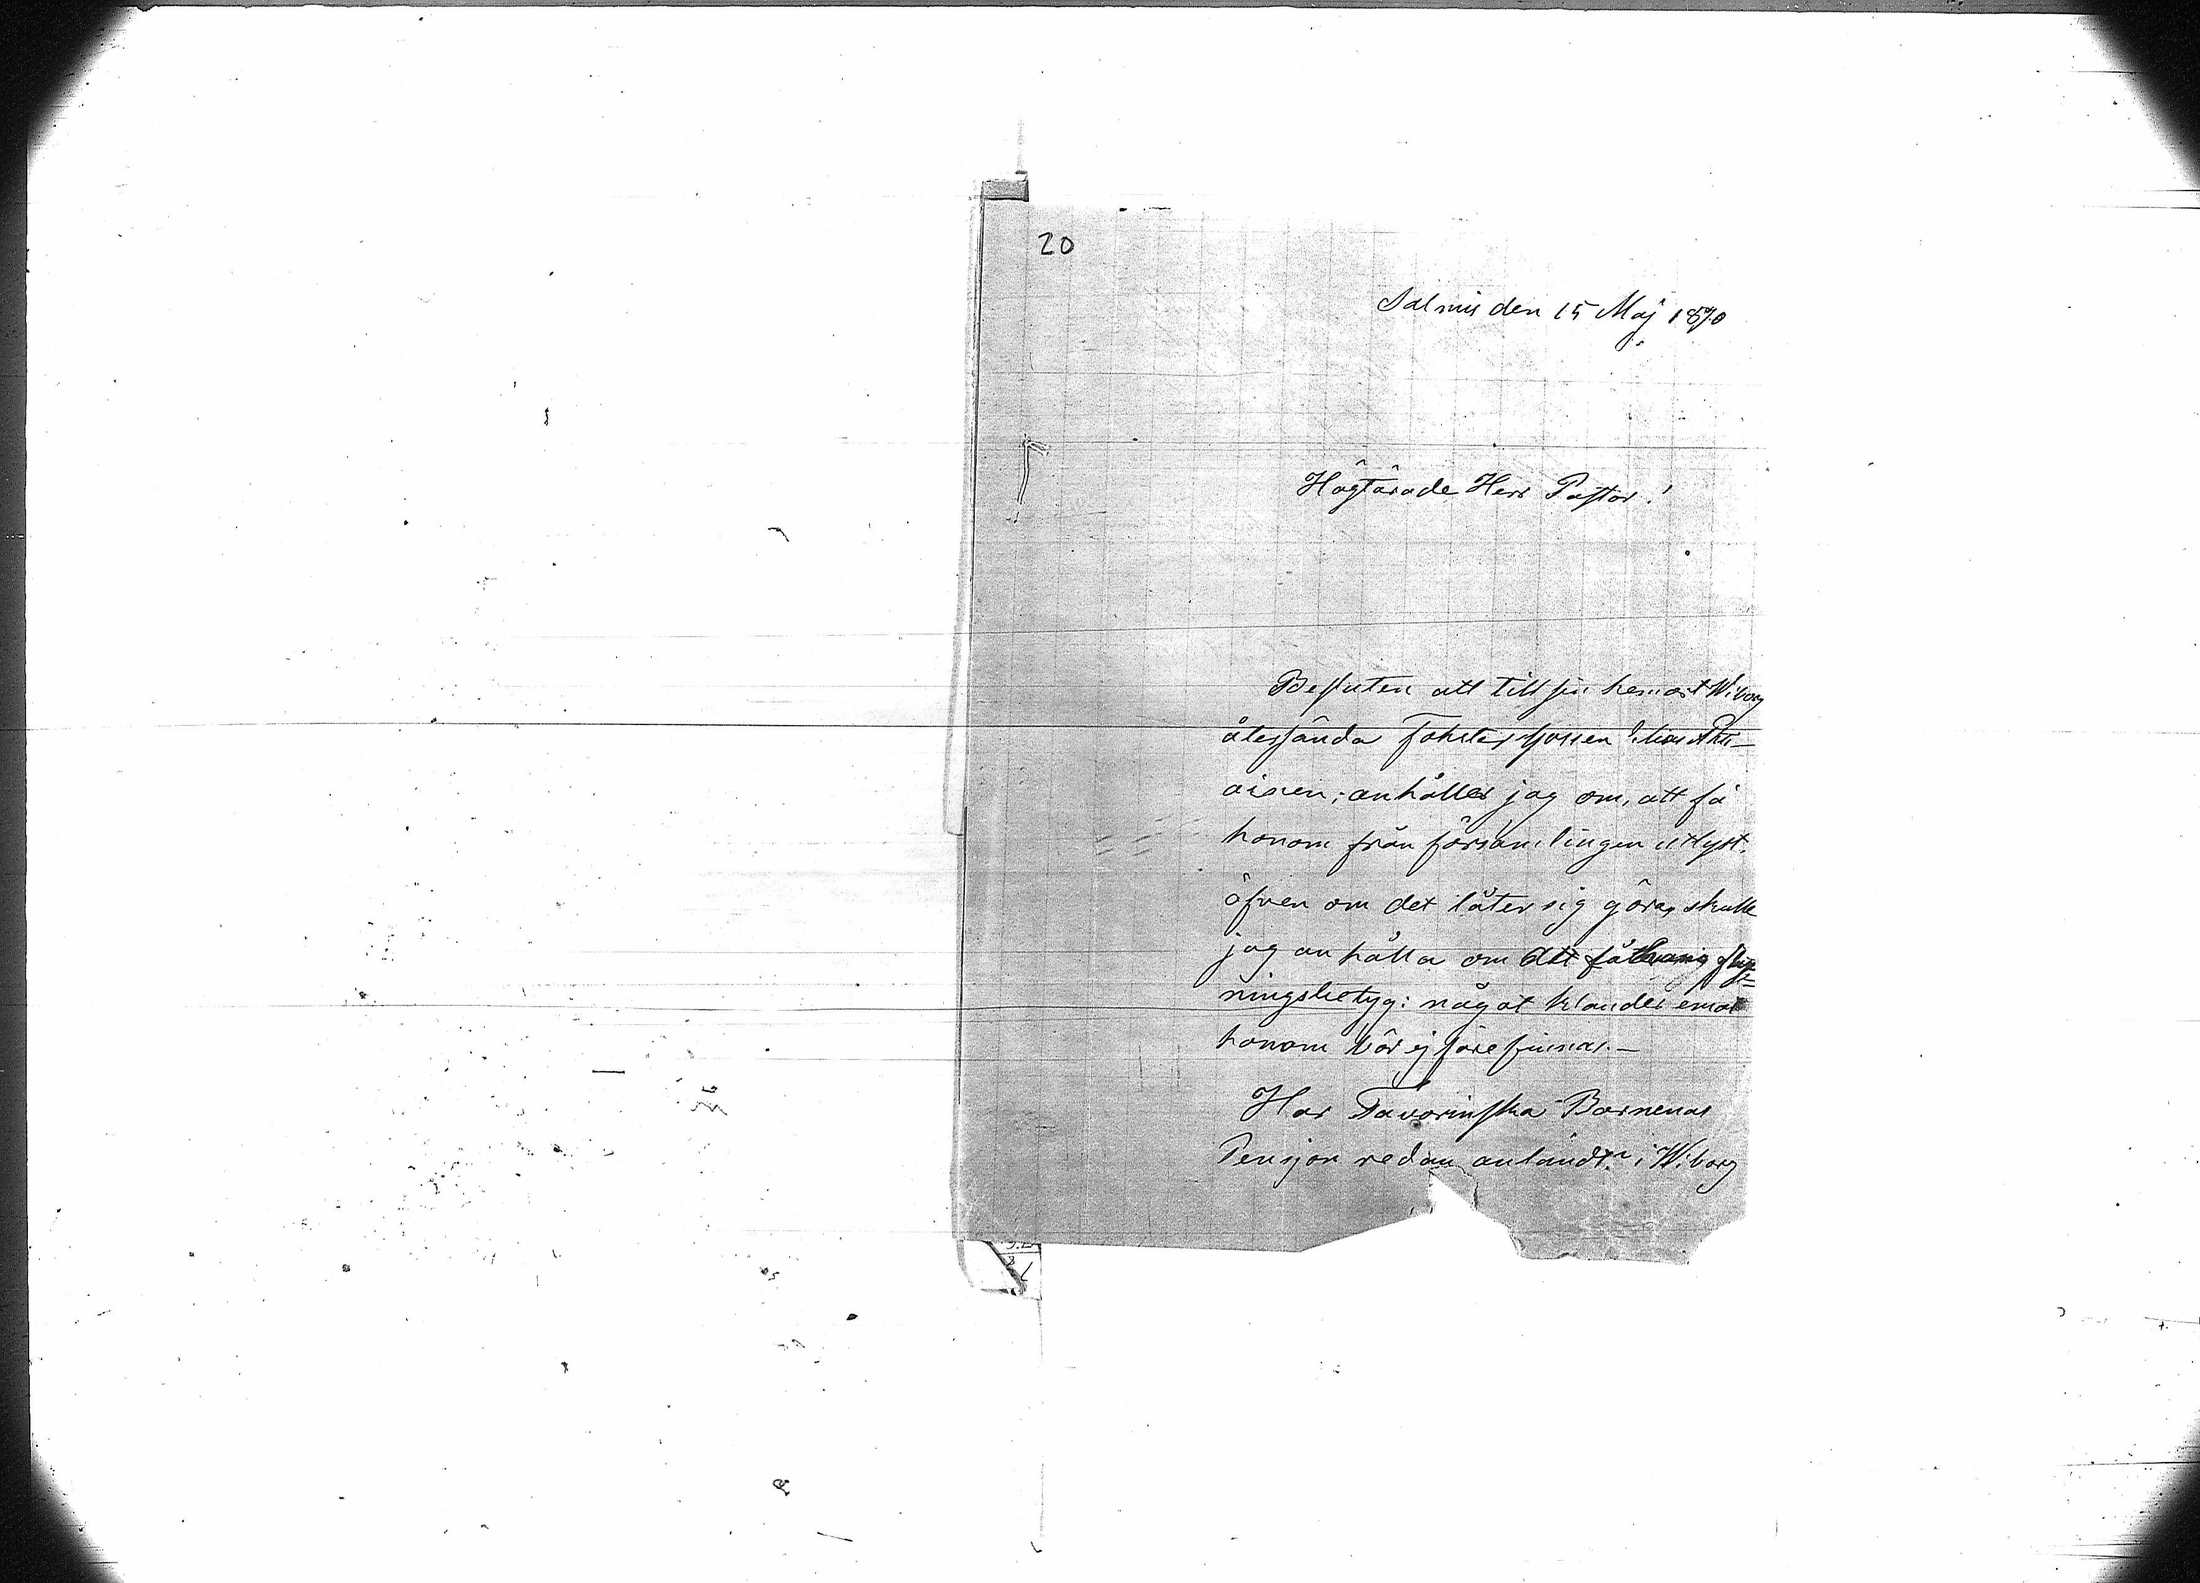 20
Salmis den 15 Maj 1870
Högtärade Herr Pastor!
Besluten att till sin hemort Wiborg
återsända Foster gossen
anhåller jag om, att få
honom från församlingen utlyst.
äfven om det låter sig göras skulle
jag anhålla om att få
ningsbetyg: något klander emot
honom bör ej förefinnas.—
Har Favorinska Barnenas
Pensjon redan anländt i Wiborg